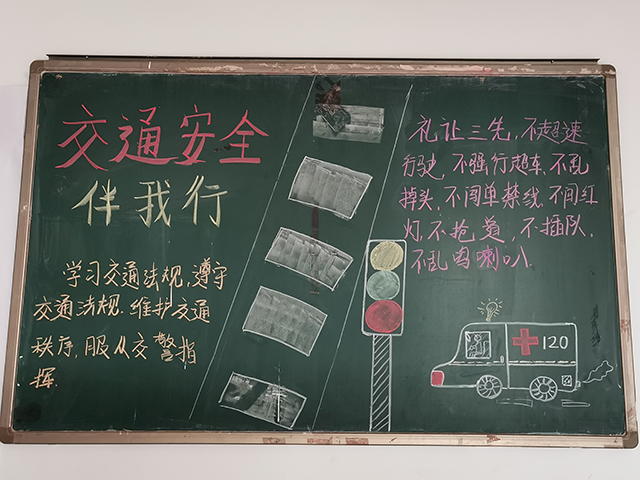 交通安全
伴我行
学习交通法规,遵守
交通法规.维护交通
秩序,服从交警指
挥.
礼让三先,不超速
行驶,不强行超车、不乱
掉头,不闯单禁线,不闯红
灯,不抢道,不插队,
不乱鸣喇叭.
120